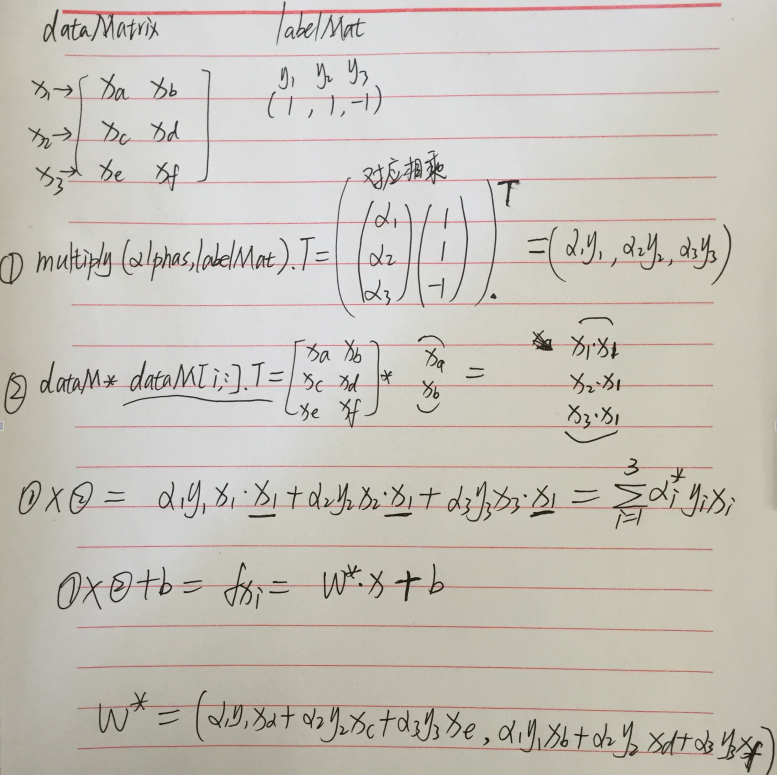 dataMatrix labelMat
y₁ y₂ y₃
x₁→ [ xa xb ] (1, 1, -1)
x₂→ [ xc xd ]
x₃→ [ xe xf ]
对应相乘
① multiply(alphas,labelMat).T= ((α₁ α₂ α₃)(1 1 -1))ᵀ =(α₁y₁, α₂y₂, α₃y₃)
② dataM* dataM[i,:].T= [xa xb xc xd xe xf] * (xa xb) = (x₁·x₁ x₂·x₁ x₃·x₁)
①×② = α₁y₁x₁·x₁+α₂y₂x₂·x₁+α₃y₃x₃·x₁ = ∑³ᵢ₌₁ αᵢ*yᵢxᵢ
①×②+b = fxᵢ = w*·x+b
w* = (α₁y₁xa+α₂y₂xc+α₃y₃xe, α₁y₁xb+α₂y₂xd+α₃y₃xf)